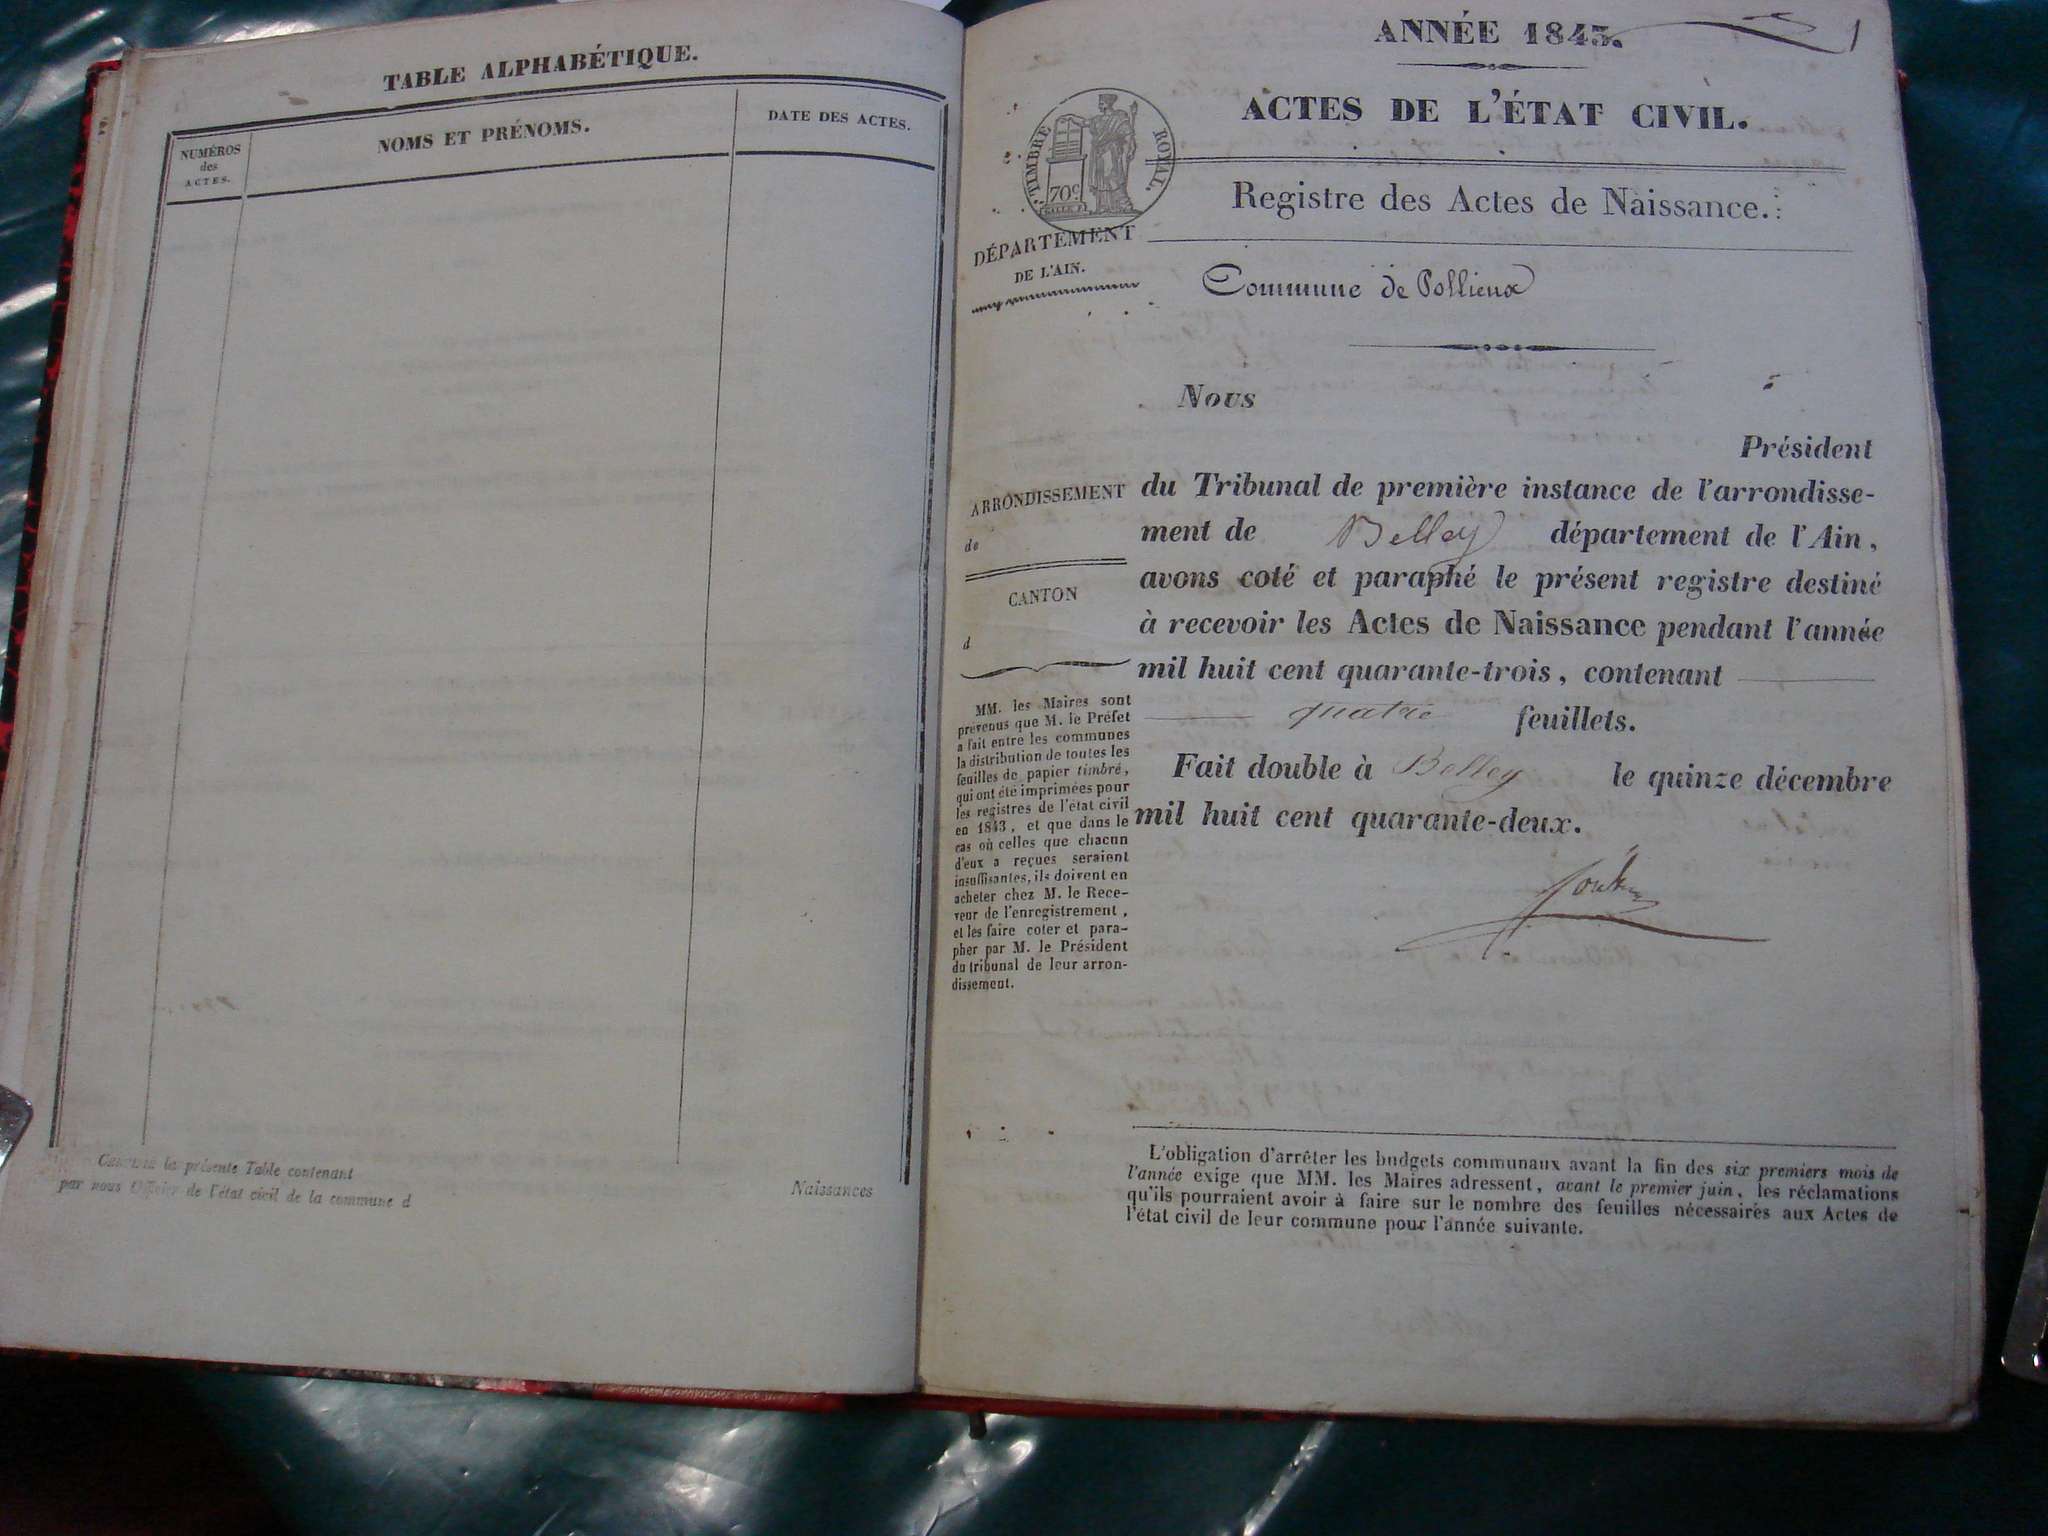 TABLE ALPHABÉTIQUE.
NUMÉROS
des
ACTES.
NOMS ET PRÉNOMS.
DATE DES ACTES.
la présente Table contenant
Naissances
par nous Officier de l'état civil de la commune d
ANNÉE 1843.
1
ACTES DE L'ÉTAT CIVIL.
TIMBRE ROYAL.
70c
Registre des Actes de Naissance.
DÉPARTEMENT
DE L'AIN.
Commune de Pollieux
Nous
Président
du Tribunal de première instance de l'arrondisse-
ment de Belley département de l'Ain,
avons coté et paraphé le présent registre destiné
à recevoir les Actes de Naissance pendant l'année
mil huit cent quarante-trois, contenant
quatre feuillets.
Fait double à Belley le quinze décembre
mil huit cent quarante-deux.
ARRONDISSEMENT
de
CANTON
d
MM. les Maires sont
prévenus que M. le Préfet
a fait entre les communes
la distribution de toutes les
feuilles de papier timbré,
qui ont été imprimées pour
les registres de l'état civil
en 1843, et que dans le
cas où celles que chacun
d'eux a reçues seraient
insuffisantes, ils doivent en
acheter chez M. le Rece-
veur de l'enregistrement,
et les faire coter et para-
pher par M. le Président
du tribunal de leur arron-
dissement.
L'obligation d'arrêter les budgets communaux avant la fin des six premiers mois de
l'année exige que MM. les Maires adressent, avant le premier juin, les réclamations
qu'ils pourraient avoir à faire sur le nombre des feuilles nécessaires aux Actes de
l'état civil de leur commune pour l'année suivante.